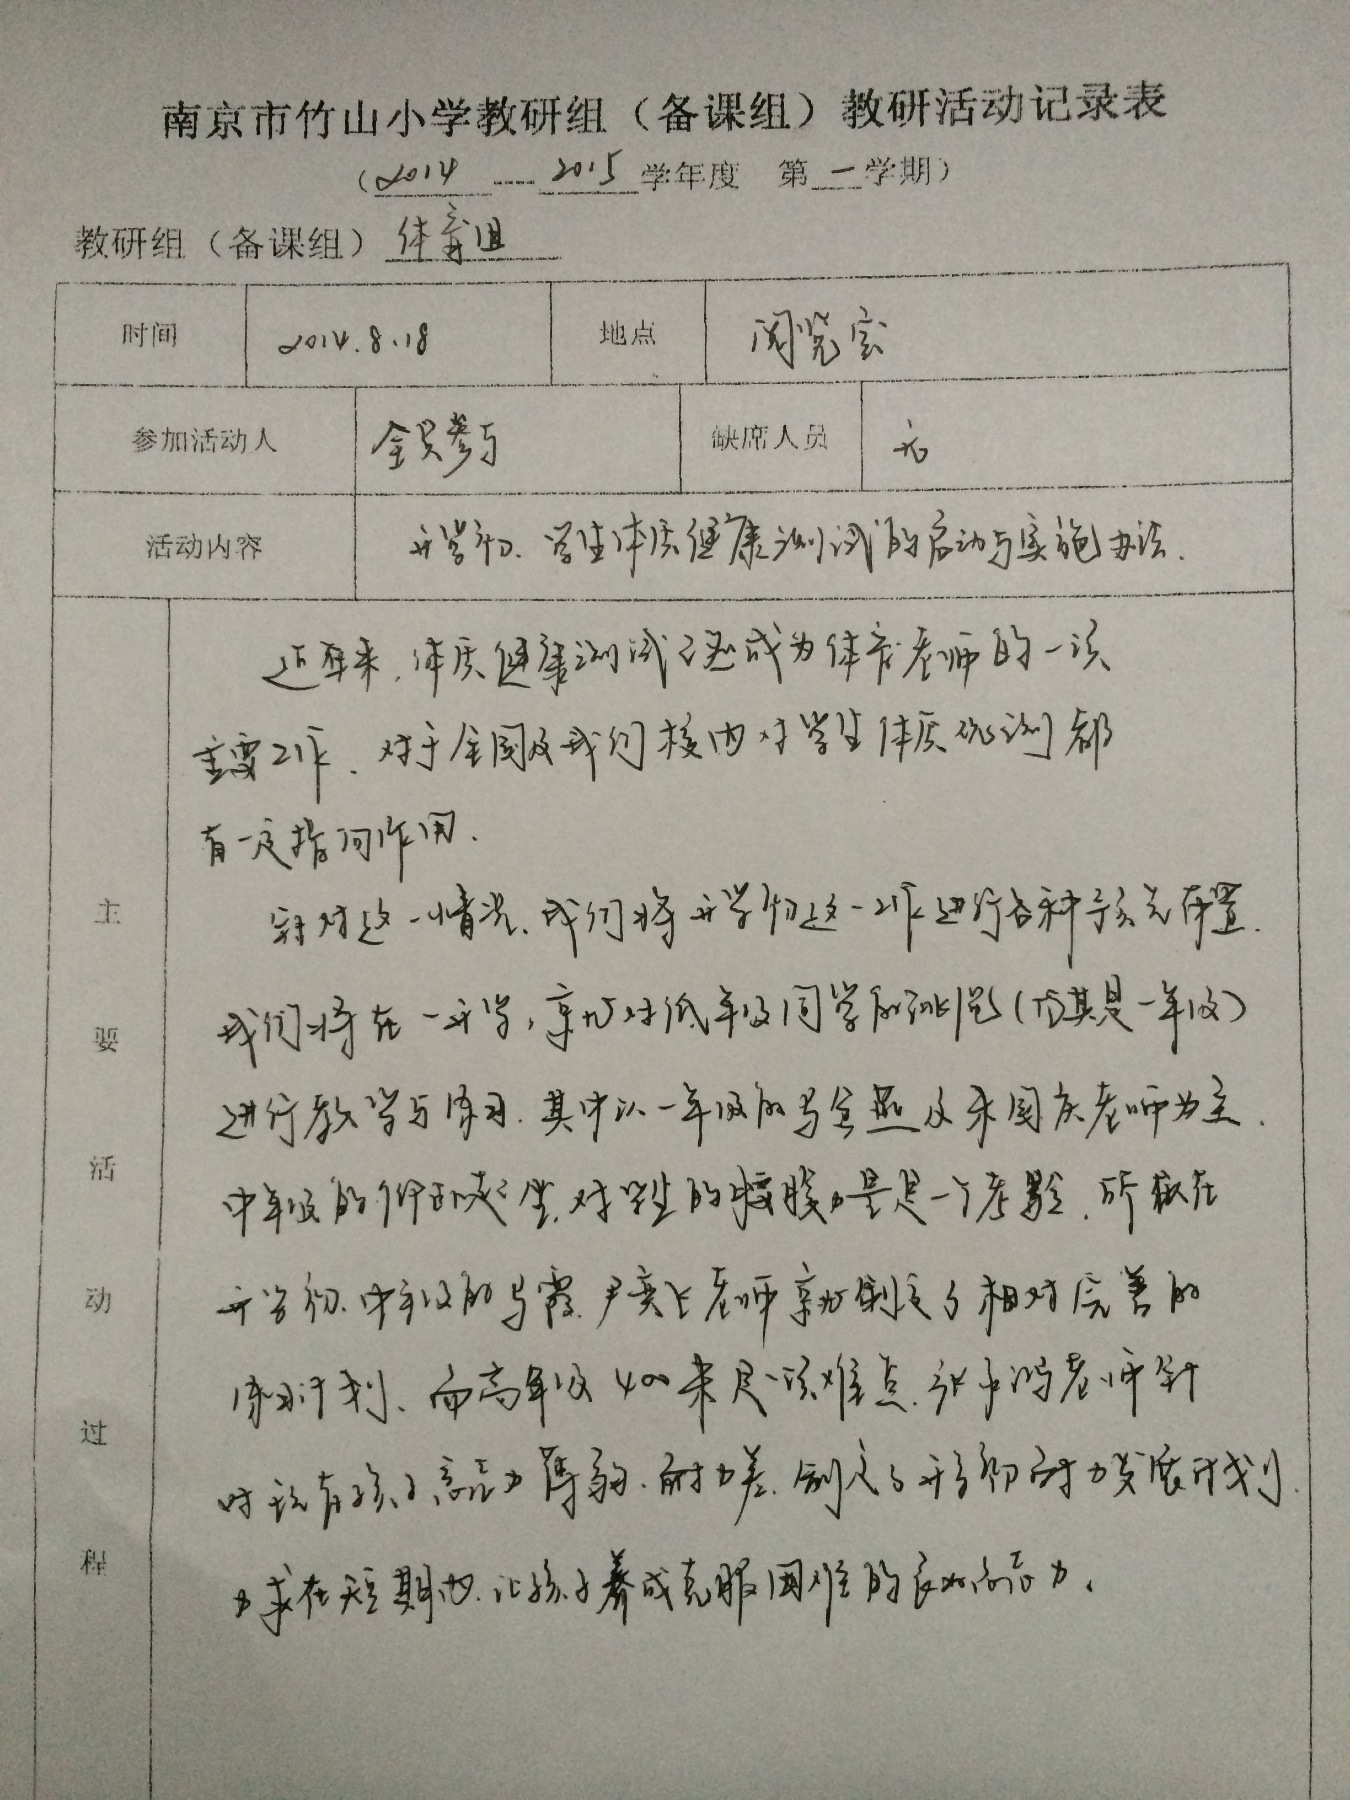 南京市竹山小学教研组（备课组）教研活动记录表
（2014 — 2015 学年度 第一学期）
教研组（备课组）体育组
时间 2014.8.18 地点 阅览室
参加活动人 全员参与 缺席人员 无
活动内容 开学初、学生体质健康测试的启动与实施办法.
主要活动过程
近年来,体质健康测试已经成为体育老师的一项
主要工作、对于全国及我们校内对学生体质监测都
有一定指向作用.
针对这一情况、我们将开学初这一工作进行各种预先布置.
我们将在一开学,就对低年级同学的跳绳(尤其是一年级)
进行教学与练习.其中以一年级的马金燕及朱国庆老师为主.
中年级的仰卧起坐,对学生的腰腹力量是一个考验.所以在
开学初、中年级的马霞、尹实飞老师就制定了相对完善的
练习计划、而高年级400米是一项难点.张鸿老师针
对现有孩子意志力薄弱、耐力差.制定了开学初耐力发展计划.
力求在短期内.让孩子养成克服困难的良好意志力.